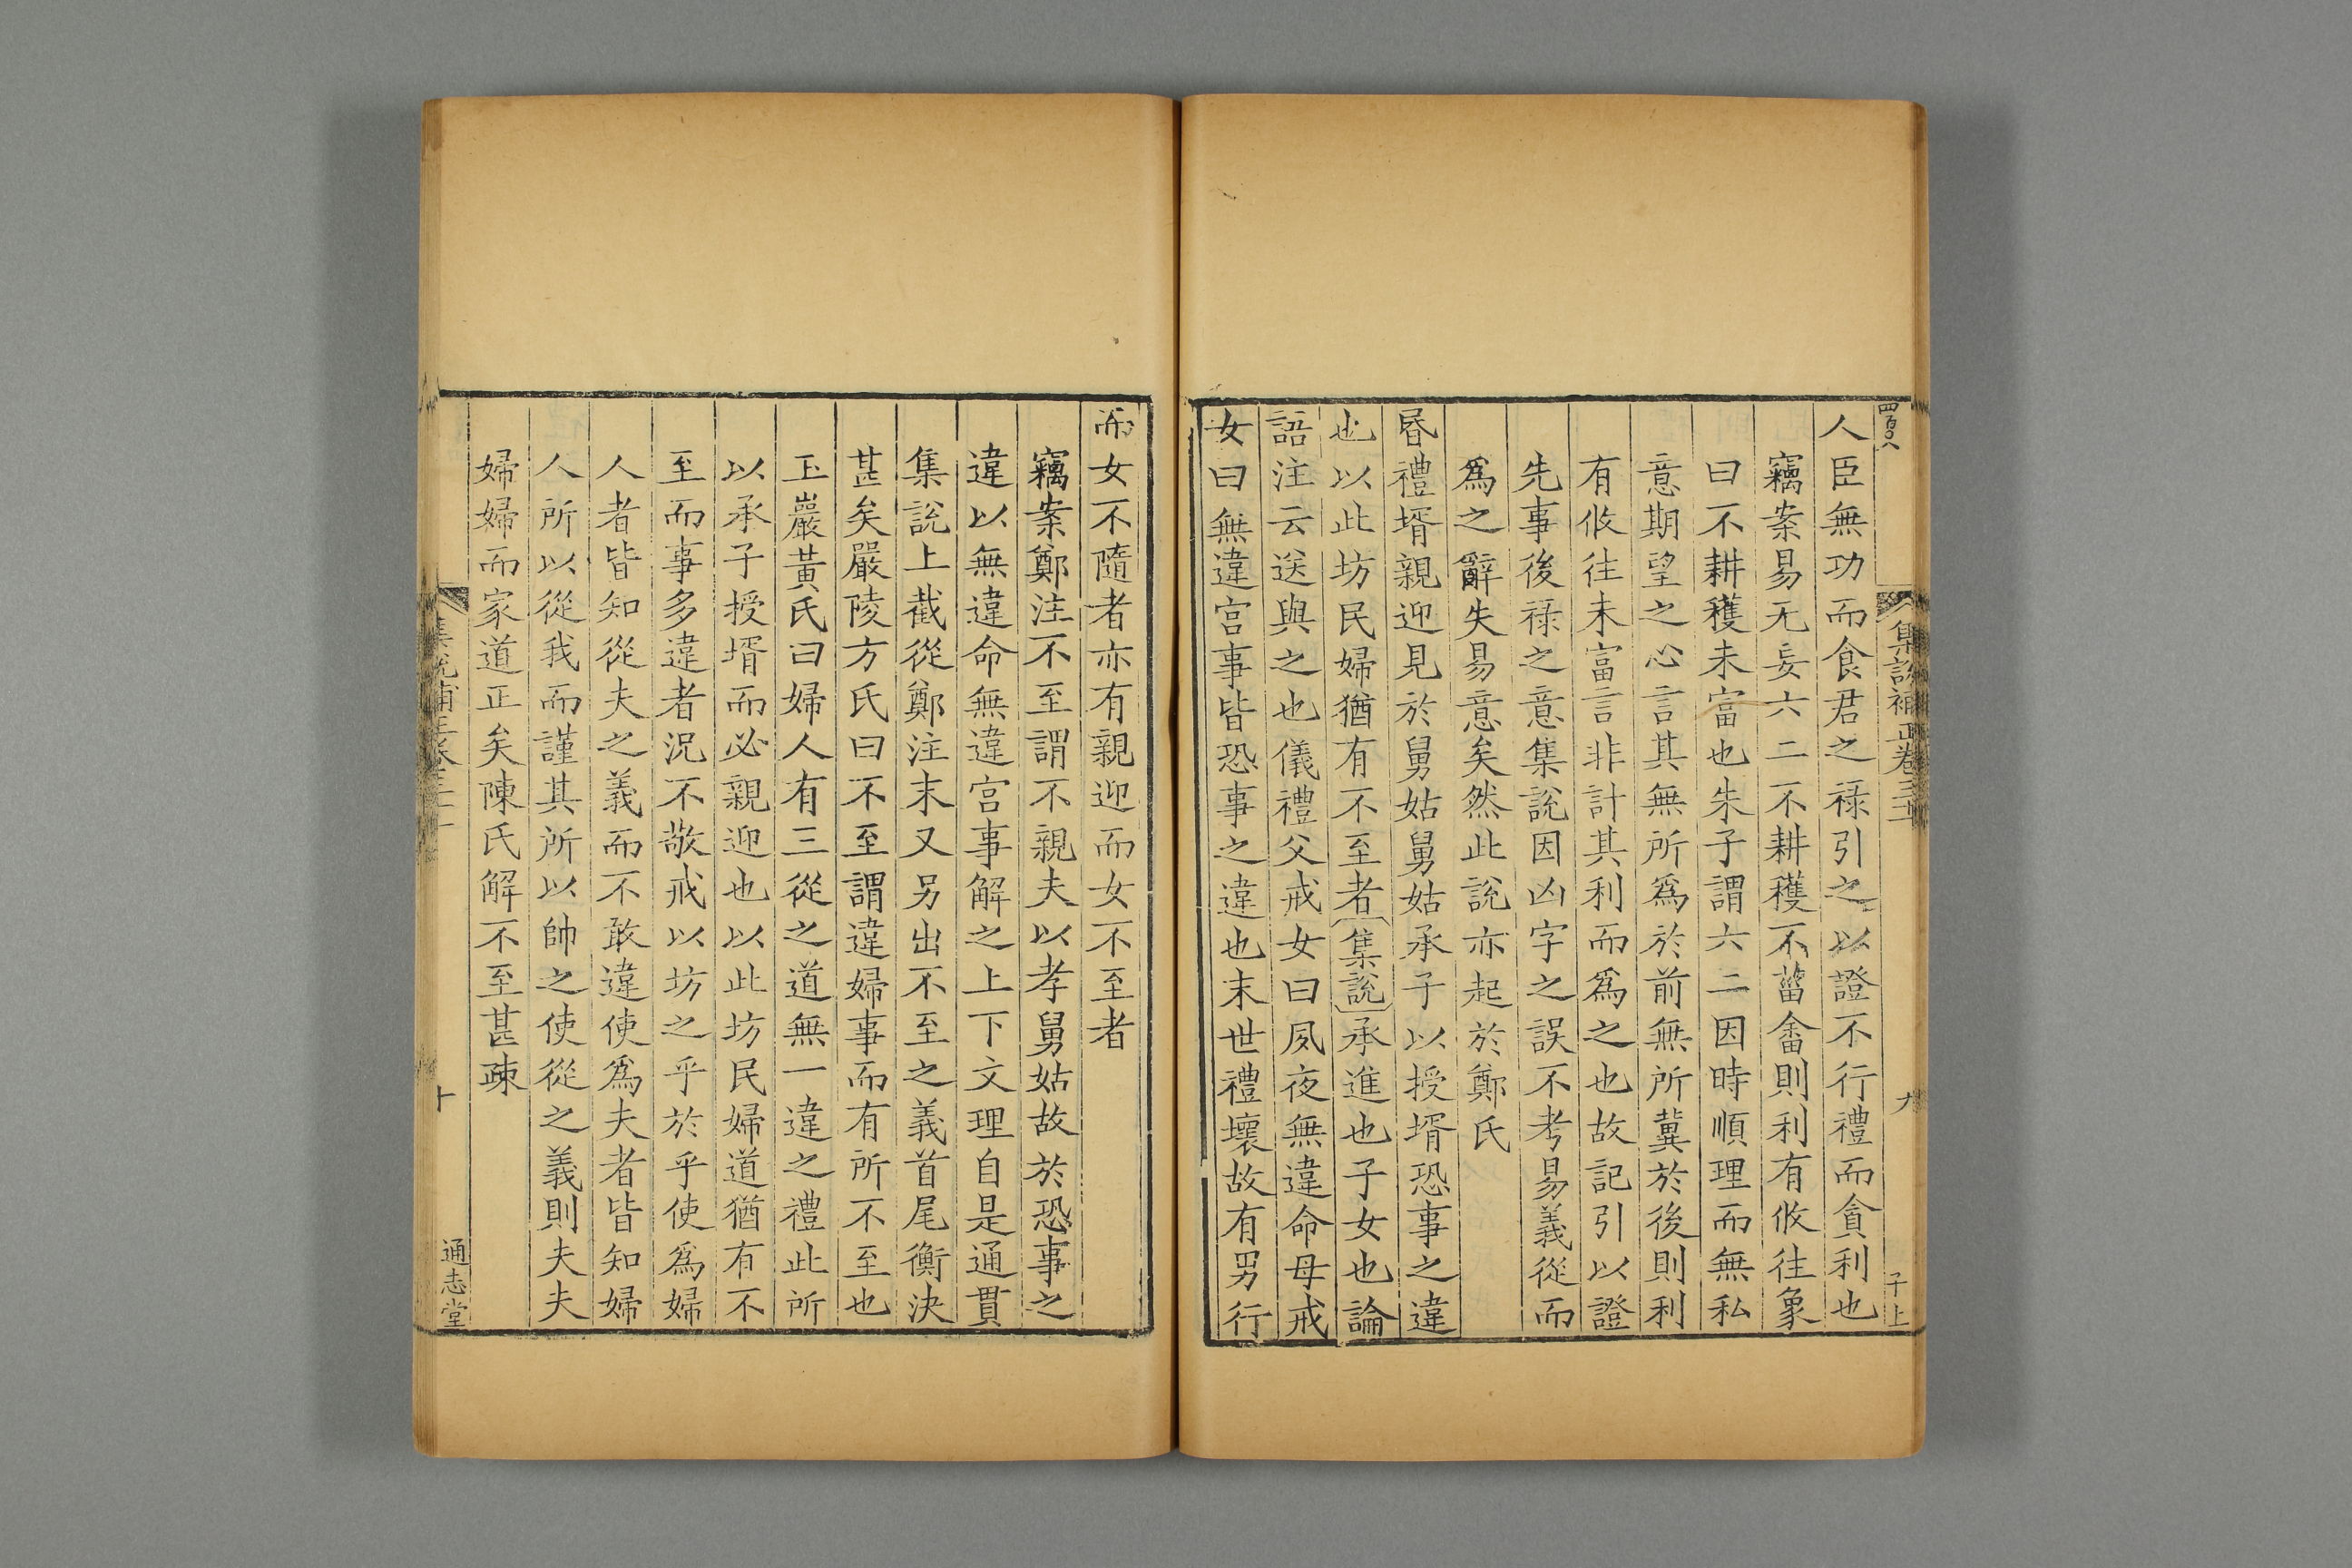 四百〇八
集說補正卷三十
九
子上
人臣無功而食君之祿引之以證不行禮而貪利也
竊案易无妄六二不耕穫不菑畬則利有攸往象
曰不耕穫未富也朱子謂六二因時順理而無私
意期望之心言其無所爲於前無所冀於後則利
有攸往未富言非計其利而爲之也故記引以證
先事後祿之意集說因凶字之誤不考易義從而
爲之辭失易意矣然此說亦起於鄭氏
昬禮壻親迎見於舅姑舅姑承子以授壻恐事之違
也以此坊民婦猶有不至者〔集說〕承進也子女也論
語注云送與之也儀禮父戒女曰夙夜無違命母戒
女曰無違宮事皆恐事之違也末世禮壞故有男行
而女不隨者亦有親迎而女不至者
竊案鄭注不至謂不親夫以孝舅姑故於恐事之
違以無違命無違宮事解之上下文理自是通貫
集說上截從鄭注末又另出不至之義首尾衡決
甚矣嚴陵方氏曰不至謂違婦事而有所不至也
玉巖黃氏曰婦人有三從之道無一違之禮此所
以承子授壻而必親迎也以此坊民婦道猶有不
至而事多違者況不敬戒以坊之乎於乎使爲婦
人者皆知從夫之義而不敢違使爲夫者皆知婦
人所以從我而謹其所以帥之使從之義則夫夫
婦婦而家道正矣陳氏解不至甚疎
集說補正卷三十
十
通志堂